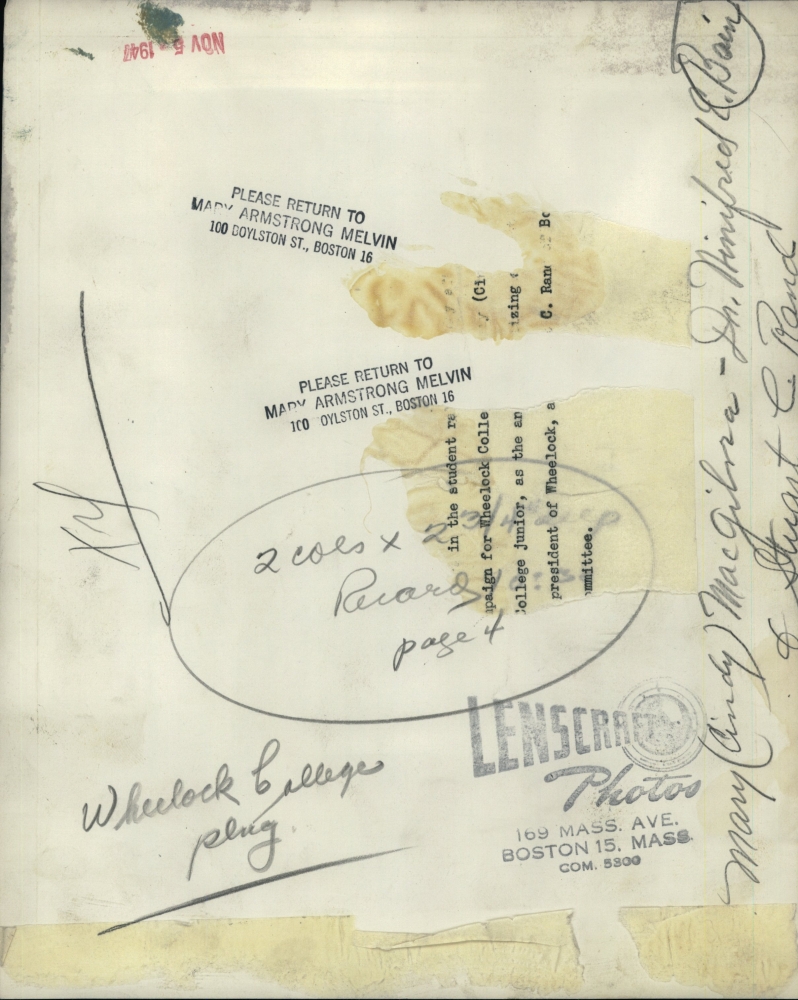 NOV 5 - 1947
PLEASE RETURN TO
MARY ARMSTRONG MELVIN
100 BOYLSTON ST., BOSTON 16
PLEASE RETURN TO
MARY ARMSTRONG MELVIN
100 BOYLSTON ST., BOSTON 16
(Ci
in the student ra
izing
paign for Wheelock Colle
C. Rand of Bo
College junior, as the an
president of Wheelock, a
ommittee.
2 cols x 2 3/4 deep
Record
page 4
Wheelock College
plug.
LENSCRAFT
Photos
169 MASS. AVE.
BOSTON 15, MASS.
COM. 5300
Mary (Cindy) MacGilvra - Dr. Winifred E. Bain
& Stuart C. Rand